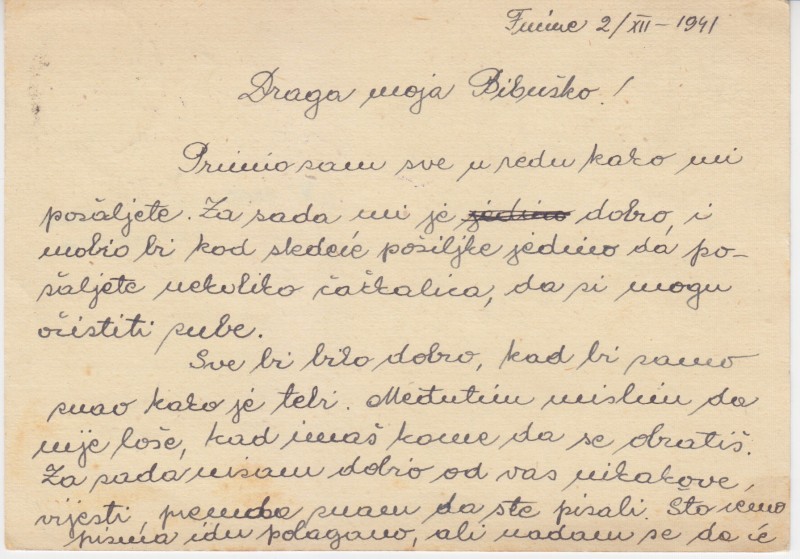 Fiume 2/XII-1941
Draga moja Bibuško!
Primio sam sve u redu kako mi
pošaljete. Za sada mi je jedino dobro, i
molio bi kod sledeće pošiljke jedino da po-
šaljete nekoliko čačkalica, da si mogu
očistiti zube.
Sve bi bilo dobro, kad bi samo
znao kako je tebi. Međutim mislim da
nije loše, kad imaš kome da se obratiš.
Za sada nisam dobio od vas nikakove
vijesti premda znam da ste pisali. Što
pisma idu polagano, ali nadam se da će